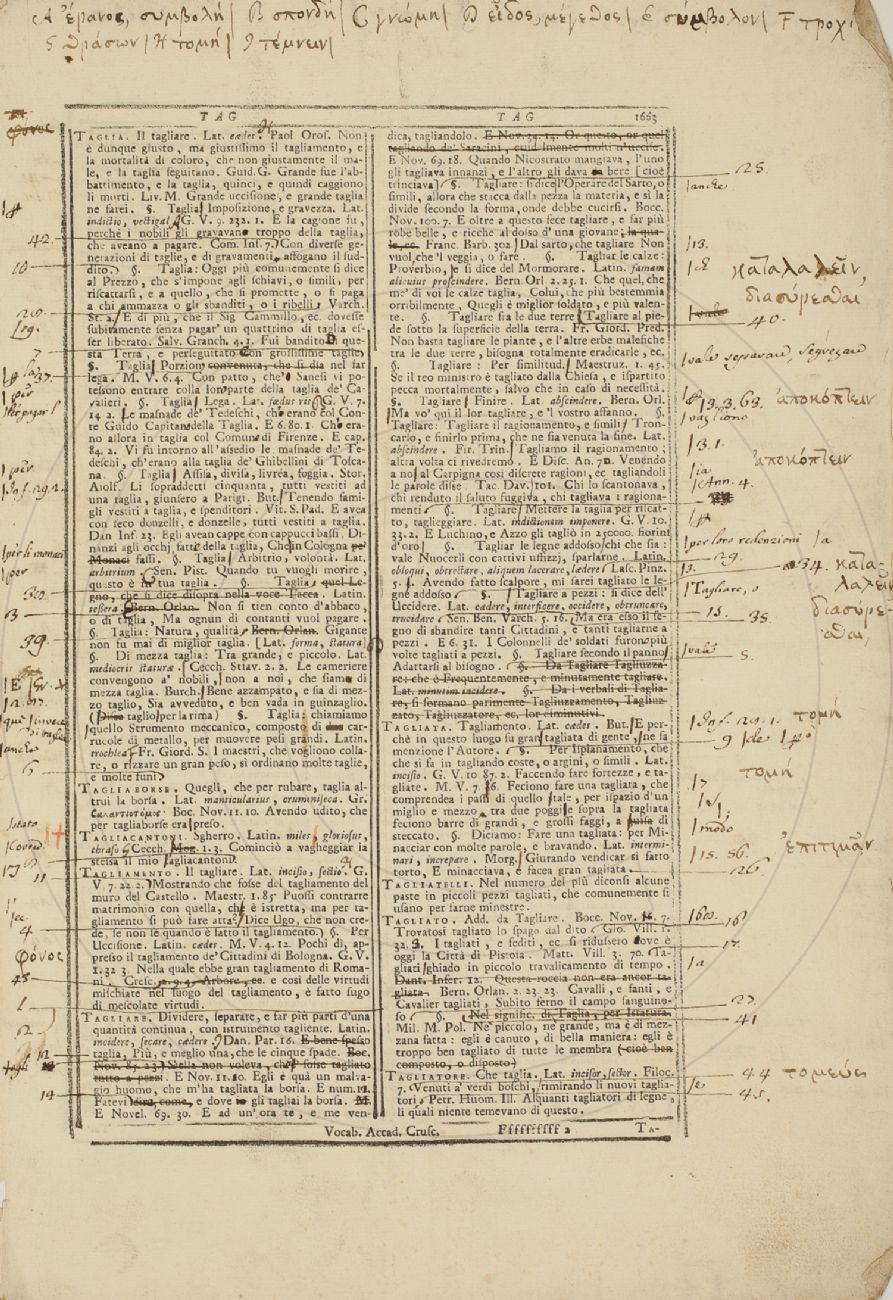 A ἔρανος, συμβολή | B σπονδή | C γνώμη | D εἶδος, μέγεθος | E σύμβολον | F τροχ
G θράσων | H τομή | I τέμνειν |
TAG
TAG 1663
TAGLIA. Il tagliare. Lat. cædes. Paol Oros. Non
è dunque giusto, ma giustissimo il tagliamento, e
la mortalità di coloro, che non giustamente il ma-
le, e la taglia seguitano. Guid. G. Grande fue l'ab-
battimento, e la taglia, quinci, e quindi caggiono
li morti. Liv. M. Grande uccisione, e grande taglia
ne farei. §. Taglia Imposizione, e gravezza. Lat.
indictio, vectigal G. V. 9. 232. 1. E la cagione fu,
perchè i nobili gli gravavano troppo della taglia,
che aveano a pagare. Com. Inf. 7. Con diverse ge-
nerazioni di taglie, e di gravamenti affogano il sud-
dito. §. Taglia: Oggi più comunemente si dice
al Prezzo, che s'impone agli schiavi, o simili, per
riscattarsi, e a quello, che si promette, o si paga
a chi ammazza o gli sbanditi, o i ribelli Varch.
St. 2. E di più, che il Sig. Cammillo, ec. dovesse
subitamente senza pagar' un quattrino di taglia es-
ser liberato. Salv. Granch. 4. 1. Fui bandito que
sta Terra, e perseguitato con grossissime taglie
§. Taglia Porzion convenuta, che si dia nel far
lega. M. V. 6. 4. Con patto, che' Sanesi vi po-
tessono entrare colla loro parte della taglia de' Ca-
valieri. §. Taglia Lega. Lat. fœdus G. V. 7.
14. 2. Le masnade de' Tedeschi, che erano col Con-
te Guido Capitano della Taglia. E 6. 80. 1. Che era-
no allora in taglia col Comune di Firenze. E cap.
84. 2. Vi fu intorno all'assedio le masnade de' Te-
deschi, ch'erano alla taglia de' Ghibellini di Tosca-
na. §. Taglia Assisa, divisa, livrea, foggia. Stor.
Aiolf. Li sopraddetti cinquanta, tutti vestiti ad
una taglia, giunsero a Parigi. But. Tenendo fami-
gli vestiti a taglia, e spenditori. Vit. S. Pad. E avea
con seco donzelli, e donzelle, tutti vestiti a taglia.
Dan Inf. 23. Egli avean cappe con cappucci bassi Di-
nanzi agli occhj, fatti della taglia, Che in Cologna pe'
Monaci fassi. §. Taglia Arbitrio, volontà. Lat.
arbitrium. Sen. Pist. Quando tu vuogli morire,
questo è in tua taglia. §. Taglia quel Le-
gno, che si dice disopra nella voce Tacca. Latin.
tessera. Bern. Orlan. Non si tien conto d'abbaco,
o di taglia, Ma ognun di contanti vuol pagare.
§. Taglia: Natura, qualità Bern. Orlan. Gigante
non fu mai di miglior taglia. [Lat. forma, statura
§. Di mezza taglia: Tra grande, e piccolo. Lat.
mediocris statura. Cecch. Stiav. 2. 2. Le cameriere
convengono a' nobili, non a noi, che siamo di
mezza taglia. Burch. Bene azzampato, e sia di mez-
zo taglio, Sia avveduto, e ben vada in guinzaglio.
(Disse taglio per la rima) §. Taglia: chiamiamo
quello Strumento meccanico, composto di car-
rucole di metallo, per muovere pesi grandi. Latin.
trochlea. Fr. Giord. S. I maestri, che vogliono colla-
re, o rizzare un gran peso, si ordinano molte taglie,
e molte funi
TAGLIABORSE. Quegli, che per rubare, taglia al-
trui la borsa. Lat. manticularius, crumniseca. Gr.
βαλαντιοτόμος Boc. Nov. 11. 10. Avendo udito, che
per tagliaborse era preso.
TAGLIACANTONI. Sgherro. Latin. miles gloriosus,
thraso Cecch. Mog. 1. 3. Cominciò a vagheggiar la
stessa il mio Tagliacantoni.
TAGLIAMENTO. Il tagliare. Lat. incisio, sectio. G.
V. 7. 22. 2. Mostrando che fosse del tagliamento del
muro del Castello. Maestr. 1. 85 Puossi contrarre
matrimonio con quella, che è istretta, ma per ta-
gliamento si può fare atta. Dice Ugo, che non cre-
de, se non se quando è fatto il tagliamento.) §. Per
Uccisione. Latin. cædes. M. V. 4. 12. Pochi dì, ap-
presso il tagliamento de' Cittadini di Bologna. G. V.
1. 32 3. Nella quale ebbe gran tagliamento di Roma-
ni. Cresc. 2. 9. 4. Arbore, ec. e così delle virtudi
mischiate nel luogo del tagliamento, è fatto sugo
di mescolate virtudi.
TAGLIARE. Dividere, separare, e far più parti d'una
quantità continua, con istrumento tagliente. Latin.
incidere, secare, cædere Dan. Par. 16. E bene spesso
taglia, Più, e meglio una, che le cinque spade. Boc.
Nov. 85. 23 Stella non voleva, che fosse tagliato
tutto a pezzi. E Nov. 11. 10. Egli è quà un malva-
gio huomo, che m'ha tagliata la borsa. E num. 11.
Fatevi dire come, e dove gli tagliai la borsa. M.
E Novel. 69. 30. E ad un' ora te, e me ven-
dica, tagliandolo. E Nov. 29. 13. Or questo, or quel
tagliando de' Saracini, crudelmente molti n'uccise.
E Nov. 69. 18. Quando Nicostrato mangiava, l'uno
gli tagliava innanzi, e l'altro gli dava bere [cioè
trinciava] §. Tagliare: si dice l'Operare del Sarto, o
simili, allora che stacca dalla pezza la materia, e sì la
divide secondo la forma, onde debbe cucirsi. Bocc.
Nov. 100. 7. E oltre a questo fece tagliare, e far più
robe belle, e ricche al dosso d'una giovane la qua-
le, ec. Franc. Barb. 302. Dal sarto, che tagliare Non
vuol, che 'l veggia, o fare. §. Tagliar le calze:
Proverbio, e si dice del Mormorare. Latin. famam
alicuius proscindere. Bern. Orl 2. 25. 1. Che quel, che
me' di voi le calze taglia, Colui, che più bestemmia
orribilmente, Quegli è miglior soldato, e più valen-
te. §. Tagliare fra le due terre Tagliare al pie-
de sotto la superficie della terra. Fr. Giord. Pred.
Non basta tagliare le piante, e l'altre erbe malefiche
tra le due terre, bisogna totalmente eradicarle, ec.
§. Tagliare: Per similitud. Maestruz. 1. 45.
Se il reo ministro è tagliato dalla Chiesa, e ispartito
pecca mortalmente, salvo che in caso di necessità.
§. Tagliare Finire. Lat. abscindere. Bern. Orl.
Ma vo' qui il lor tagliare, e 'l vostro affanno. §.
Tagliare: Tagliare il ragionamento, e simili Tron-
carlo, e finirlo prima, che ne sia venuta la fine. Lat.
abscindere. Fir. Trin. Tagliamo il ragionamento;
altra volta ci rivedremo. E Disc. An. 70. Venendo
a noj al Carpigna così discrete ragioni, ec. tagliandoli
le parole disse. Tac. Dav. 101. Chi lo scantonava,
chi renduto il saluto fuggiva, chi tagliava i ragiona-
menti §. Tagliare Mettere la taglia per riscat-
to, taglieggiare. Lat. indictionem imponere. G. V. 10.
33. 2. E Luchino, e Azzo gli tagliò in 25000. fiorini
d'oro §. Tagliar le legne addosso chi che sia:
vale Nuocerli con cattivi uffizzj, sparlarne. Latin.
obloqui, obtrectare, aliquem lacerare, lædere Lasc. Pinz.
5. Avendo fatto scalpore, mi sarei tagliato le le-
gne addosso §. Tagliare a pezzi: si dice dell'
Uccidere. Lat. cædere, interficere, occidere, obtruncare,
trucidare Sen. Ben. Varch. 5. 16. Ma era esso il se-
gno di sbandire tanti Cittadini, e tanti tagliarne a
pezzi. E 6. 31. I Colonnelli de' soldati furon più
volte tagliati a pezzi. §. Tagliare secondo il panno
Adattarsi al bisogno. §. Da Tagliare Tagliuzza-
re: che è Frequentemente, e minutamente tagliare.
Lat. minutim incidere. §. Da i verbali di Taglia-
re, si formano parimente Tagliuzzamento, Tagliuz-
zato, Tagliuzzatore, ec. lor diminutivi.
TAGLIATA. Tagliamento. Lat. cædes. But. E per-
chè in questo luogo fu gran tagliata di gente, ne fa
menzione l'Autore. §. Per Ispianamento, che
che si fa in tagliando coste, o argini, o simili. Lat.
incisio. G. V. 10 87. 2. Faccendo fare fortezze, e ta-
gliate. M. V. 7. Feciono fare una tagliata, che
comprendea i passi di quello stale, per ispazio d'un
miglio e mezzo tra due poggi sopra la tagliata
feciono barre di grandi, e grossi faggi, a guisa di
steccato. §. Diciamo: Fare una tagliata: per Mi-
nacciar con molte parole, e bravando. Lat. intermi-
nari, increpare. Morg. Giurando vendicar sì fatto
torto, E minacciava, e facea gran tagliata.
TAGLIATELLI. Nel numero del più diconsi alcune
paste in piccoli pezzi tagliati, che comunemente si
usano per farne minestre.
TAGLIATO. Add. da Tagliare. Bocc. Nov. 16. 7.
Trovatosi tagliato lo spago dal dito Gio. Vill. 1.
32. 8. I tagliati, e fediti, ec. si ridussero dove è
oggi la Città di Pistoia. Matt. Vill. 3. 70. Ta-
gliati ghiado in piccolo travalicamento di tempo.
Dant. Infer. 12. Questa roccia non era ancor ta-
gliata. Bern. Orlan. 2. 23. 23. Cavalli, e fanti, e
Cavalier tagliati, Subito ferno il campo sanguino-
so §. Nel signific. di Taglia, per Istatura.
Mil. M. Pol. Ne piccolo, ne grande, ma è di mez-
zana fatta: egli è canuto, di bella maniera: egli è
troppo ben tagliato di tutte le membra (cioè ben
composto, o disposto)
TAGLIATORE. Che taglia. Lat. incisor, sector. Filoc.
7. Venuti a' verdi boschi, rimirando li nuovi taglia-
tori, Petr. Huom. Ill. Alquanti tagliatori di legne,
li quali niente temevano di questo.
Vocab. Accad. Crusc. Ffffffffff 2 TA-
φόνος
42.
10
Leg.
39.
63
6
11
4
φόνος
45
62
12
14
25.
anche
13.
καταλαλεῖν,
διασύρεσθαι
40.
vale separare, segregare
13. 3. 63. ἀποκόπτειν
13. 1.
ἀποκόπτειν
Ann. 4.
per loro redenzioni
29.
34. κατα
λαλεῖν
Tagliare, o
διασύρε-
σθαι,
15. 35.
vale 5.
Inf. 29. 1. τομή
9
τομή
17
modo
ἐπιτιμᾶν
15. 56.
26.
16
17.
23.
41
44 τομεύς
45.